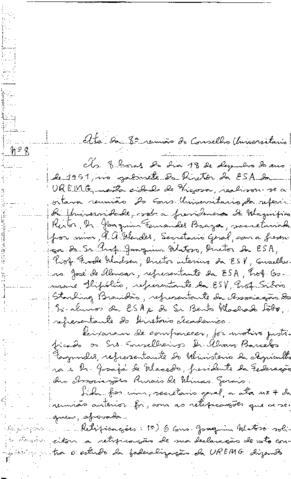 Ata da 8ª reunião do Conselho Universitário
Nº 8
Às 8 horas do dia 18 de dezembro do ano
de 1951, no gabinete do Diretor da ESA da
UREMG, nesta cidade de Viçosa, realizou-se a
oitava reunião do Cons. Universitário da referi-
da Universidade, sob a presidência do Magnífico
Reitor, Dr. Joaquim Fernandes Braga, secretariada
por mim, Mendes, Secretário Geral, com a presen-
ça do Sr. Prof. Joaquim Matoso, Diretor da ESA,
Prof. Diretor interino da ESV, Conselhei-
ro José de Alencar, representante da ESA, Prof. Go-
Hipólito, representante da ESV, Prof. Sílvio
Starling Brandão, representante da Associação dos
Ex-alunos da ESA e Sr. Bento Machado Lôbo,
representante do Diretório Acadêmico.
Deixaram de comparecer, por motivo justi-
ficado os Srs. Conselheiros Dr. Barcelos
Fagundes, representante do Ministério da Agricultu-
ra e Dr. Josafá Macedo, presidente da Federação
das Associações Rurais de Minas Gerais.
Lida por mim, secretário geral, a ata nº 7 da
reunião anterior foi, com as retificações que se se-
guem, aprovada.
Retificações: 1º) O Cons. Joaquim Matoso soli-
citou a retificação de sua declaração de voto con-
tra o estudo da federalização da UREMG dizendo